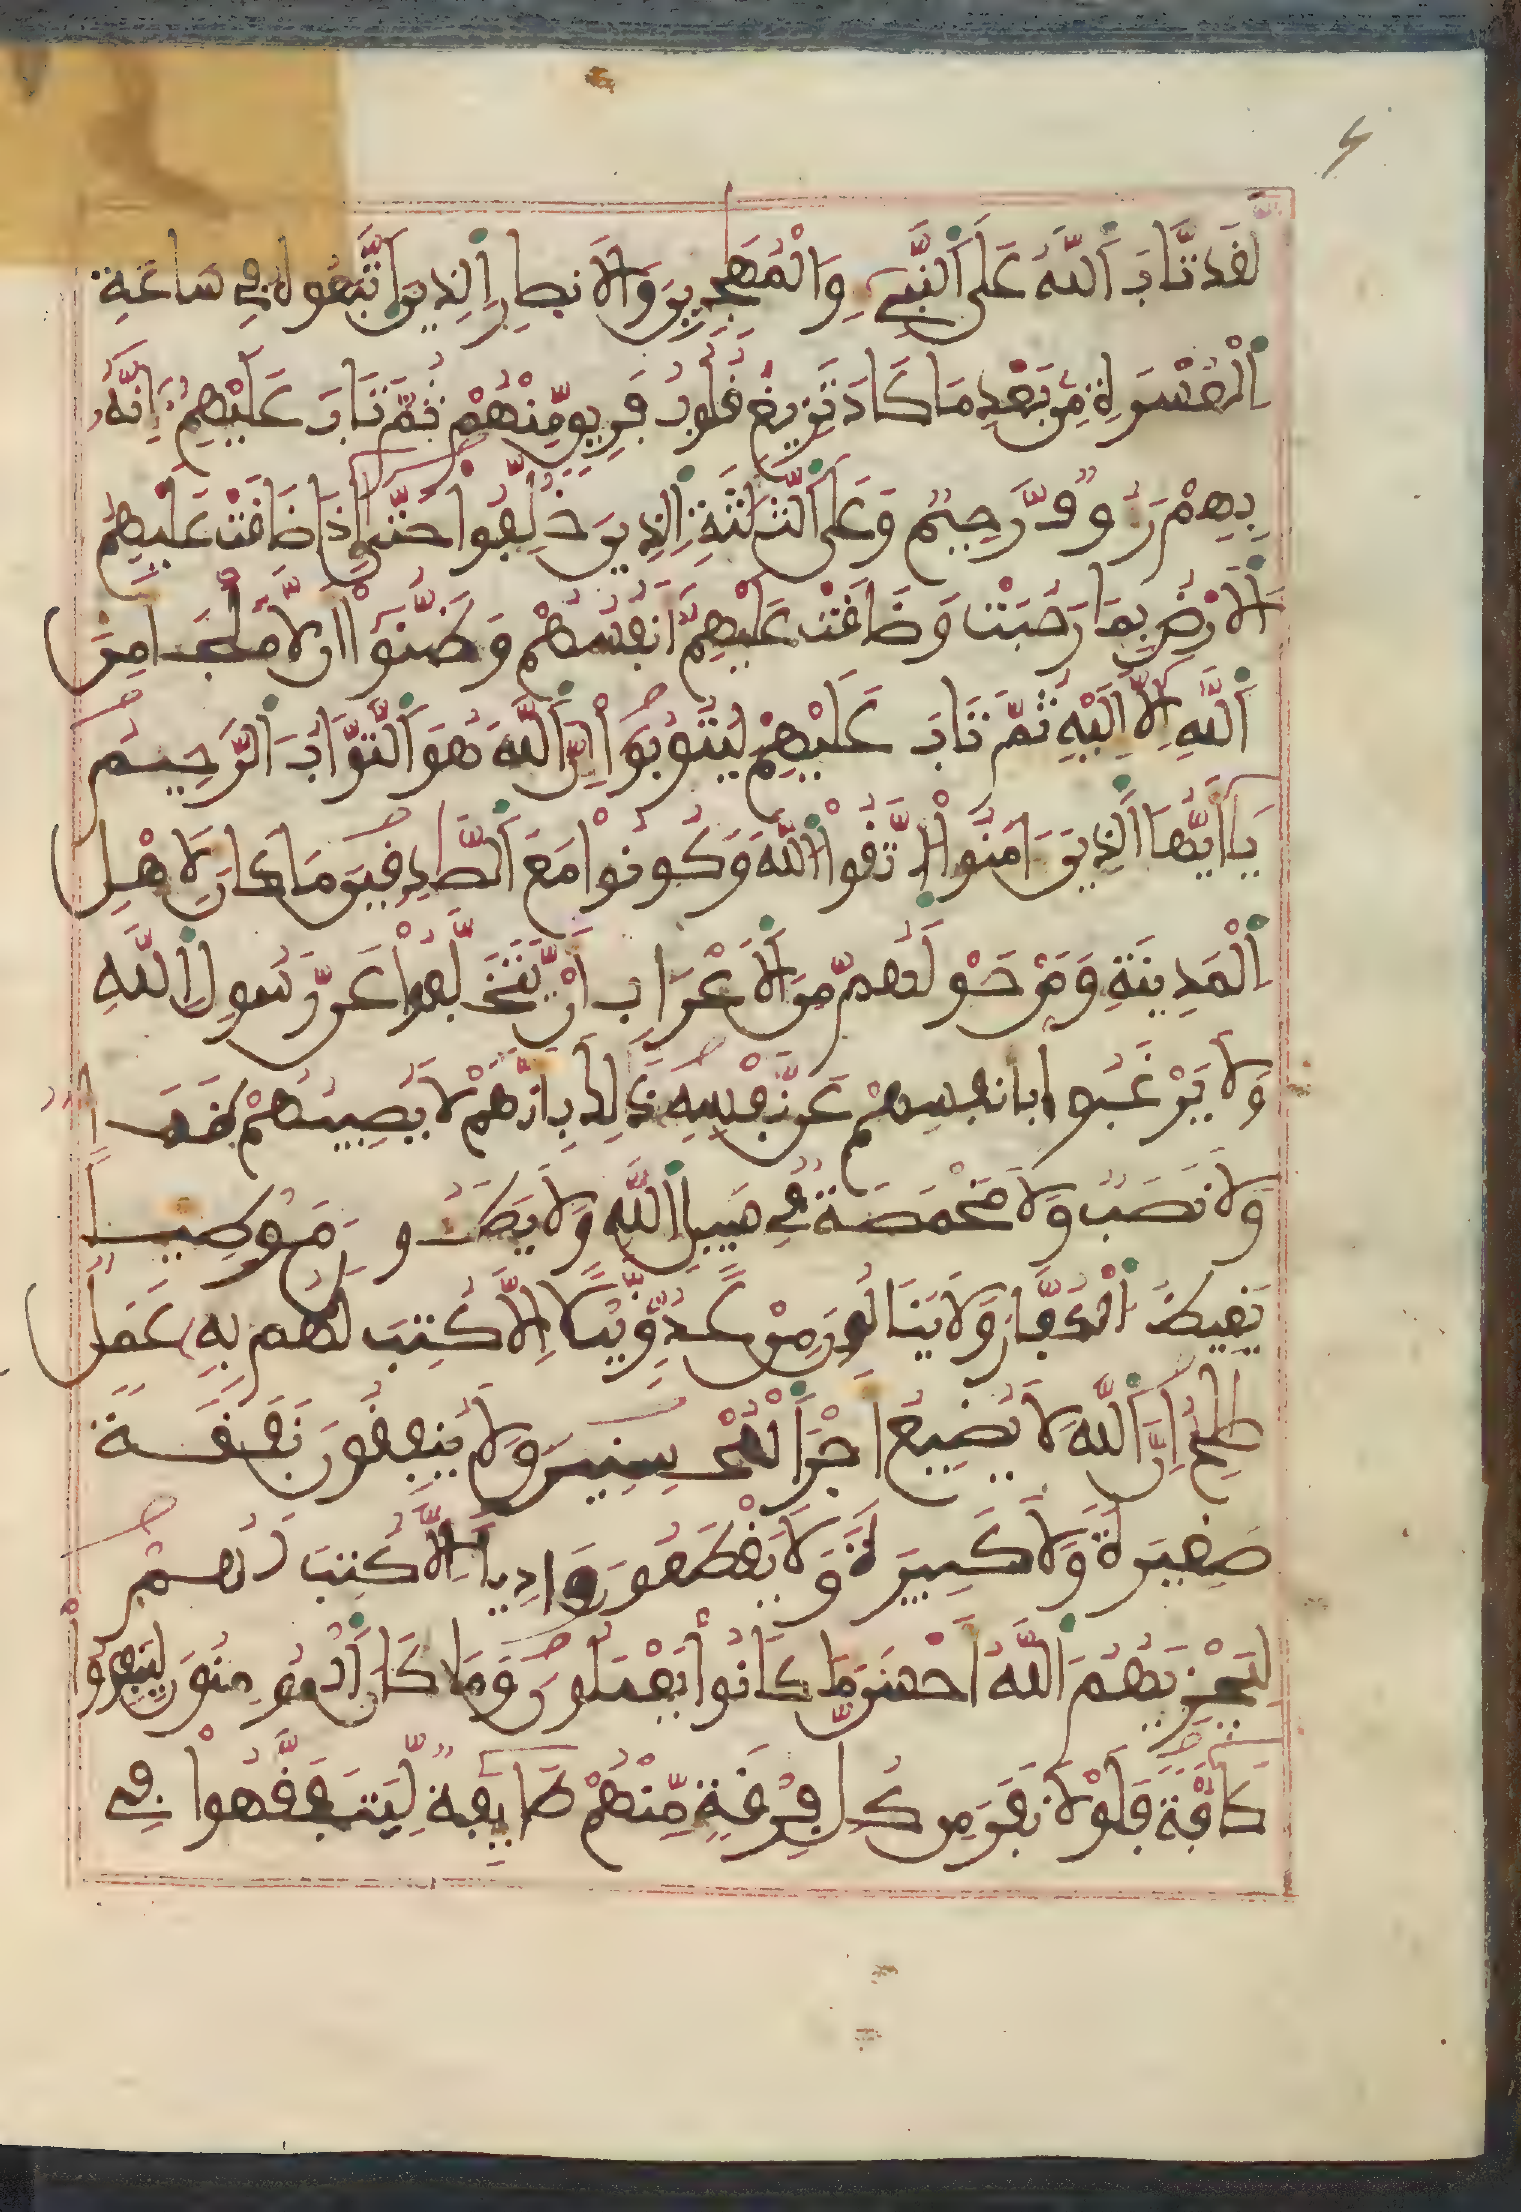 لَّقَد تَّابَ اَ۬للَّهُ عَلَى اَ۬لنَّبِيٓءِ وَالْمُهَٰجِرِينَ وَالَانصارِ اِ۬لذِينَ اَ۪تَّبَعُوهُ فِي سَاعَةِ
اِ۬لْعُسْرَةِ مِنۢ بَعْدِ مَا كَادَ تَزِيغُ قُلُوبُ فَرِيقٍ مِّنْهُمْ ثُمَّ تَابَ عَلَيْهِمُۥٓ إِنَّهُۥ
بِهِمْ رَءُوفٌ رَّحِيمٌ وَعَلَى اَ۬لثَّلَٰثَةِ اِ۬لذِينَ خُلِّفُوا۟ حَتَّىٰٓ إِذَا ضَاقَتْ عَلَيْهِمُ
اُ۬لَارْضُ بِمَا رَحُبَتْ وَضَاقَتْ عَلَيْهِمُۥٓ أَنفُسُهُمْ وَظَنُّوٓا۟ أَن لَّا مَلْجَأَ مِنَ
اَ۬للَّهِ إِلَّآ إِلَيْهِ ثُمَّ تَابَ عَلَيْهِمْ لِيَتُوبُوٓا۟ إِنَّ اَ۬للَّهَ هُوَ اَ۬لتَّوَّابُ اُ۬لرَّحِيمُ
يَٰٓأَيُّهَا اَ۬لذِينَ ءَامَنُوا۟ اُ۪تَّقُوا۟ اُ۬للَّهَ وَكُونُوا۟ مَعَ اَ۬لصَّٰدِقِينَ مَا كَانَ لِأَهْلِ
اِ۬لْمَدِينَةِ وَمَنْ حَوْلَهُم مِّنَ اَ۬لَاعْرَابِ أَنْ يَّتَخَلَّفُوا۟ عَن رَّسُولِ اِ۬للَّهِ
وَلَا يَرْغَبُوا۟ بِأَنفُسِهِمْ عَن نَّفْسِهِۦ ذَٰلِكَ بِأَنَّهُمْ لَا يُصِيبُهُمْ ظَمَأٌ
وَلَا نَصَبٌ وَلَا مَخْمَصَةٌ فِي سَبِيلِ اِ۬للَّهِ وَلَا يَطَـُٔونَ مَوْطِئًا
يَغِيظُ اُ۬لْكُفَّارَ وَلَا يَنَالُونَ مِنْ عَدُوٍّ نَّيْلًا اِلَّا كُتِبَ لَهُم بِهِۦ عَمَلٌ
صَٰلِحٌ إِنَّ اَ۬للَّهَ لَا يُضِيعُ أَجْرَ اَ۬لْمُحْسِنِينَ وَلَا يُنفِقُونَ نَفَقَةً
صَغِيرَةً وَلَا كَبِيرَةً وَلَا يَقْطَعُونَ وَادِيًا اِلَّا كُتِبَ لَهُمْ
لِيَجْزِيَهُمُ اُ۬للَّهُ أَحْسَنَ مَا كَانُوا۟ يَعْمَلُونَ وَمَا كَانَ اَ۬لْمُومِنُونَ لِيَنفِرُوا۟
كَآفَّةً فَلَوْلَا نَفَرَ مِن كُلِّ فِرْقَةٍ مِّنْهُمْ طَآئِفَةٌ لِّيَتَفَقَّهُوا۟ فِي